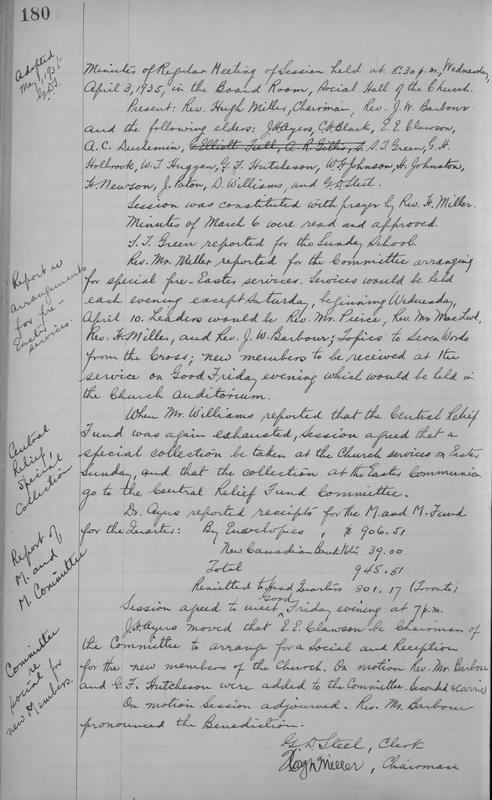 180
Adopted
May 1, 1935
G.D.S.
Minutes of Regular Meeting of Session held at 5:30 p.m., Wednesday,
April 3, 1935, in the Board Room, Social Hall of the Church.
Present: Rev. Hugh Miller, Chairman, Rev. J.W. Barbour
and the following elders: J.H. Ayers, C.H. Black, E.E. Clawson,
A.C. Duchemin, S.T. Green, G.H.
Holbrook, W.T. Huggan, G.F. Hutcheson, W.F. Johnson, H. Johnston,
H. Newson, J. Paton, D. Williams, and G.D. Steel.
Session was constituted with prayer by Rev. H. Miller.
Minutes of March 6 were read and approved.
S.T. Green reported for the Sunday School.
Rev. Mr. Miller reported for the Committee arranging
Report re
arrangements
for pre-
Easter
services.
for special pre-Easter services. Services would be held
each evening except Saturday, beginning Wednesday,
April 10. Leaders would be Rev. Mr. Peirce, Rev. Mr. MacLeod,
Rev. H. Miller, and Rev. J.W. Barbour; Topics to Seven Words
from the Cross; new members to be received at the
service on Good Friday evening which would be held in
the Church Auditorium.
When Mr. Williams reported that the Central Relief
Central
Relief,
Special
Collection
Fund was again exhausted, Session agreed that a
special collection be taken at the Church services on Easter
Sunday, and that the collection at the Easter Communion
go to the Central Relief Fund Committee.
Dr. Ayers reported receipts for the M. and M. Fund
Report of
M. and
M. Committee
for the Quarter: By Envelopes, $ 906.51
New Canadian 39.00
Total 945.51
Remitted to Head Quarters 801.17 (Toronto)
Session agreed to meet Good Friday evening at 7 p.m.
J.H. Ayers moved that E.E. Clawson be Chairman of
Committee
re
social for
new Members.
the Committee to arrange for a Social and Reception
for the new members of the Church. On motion Rev. Mr. Barbour
and G.F. Hutcheson were added to the Committee. Seconded & carried
On motion Session adjourned. Rev. Mr. Barbour
pronounced the Benediction.
G.D. Steel, Clerk
Hugh Miller, Chairman